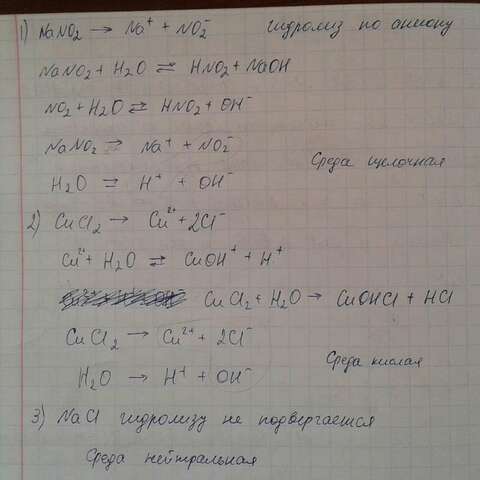 1) NaNO₂ → Na⁺ + NO₂⁻ гидролиз по аниону
NaNO₂ + H₂O ⇄ HNO₂ + NaOH
NO₂ + H₂O ⇄ HNO₂ + OH⁻
NaNO₂ → Na⁺ + NO₂⁻
Среда щелочная
H₂O ⇄ H⁺ + OH⁻
2) CuCl₂ → Cu²⁺ + 2Cl⁻
Cu²⁺ + H₂O ⇄ CuOH⁺ + H⁺
CuCl₂ + H₂O → CuOHCl + HCl
CuCl₂ → Cu²⁺ + 2Cl⁻
Среда кислая
H₂O → H⁺ + OH⁻
3) NaCl гидролизу не подвергается
Среда нейтральная